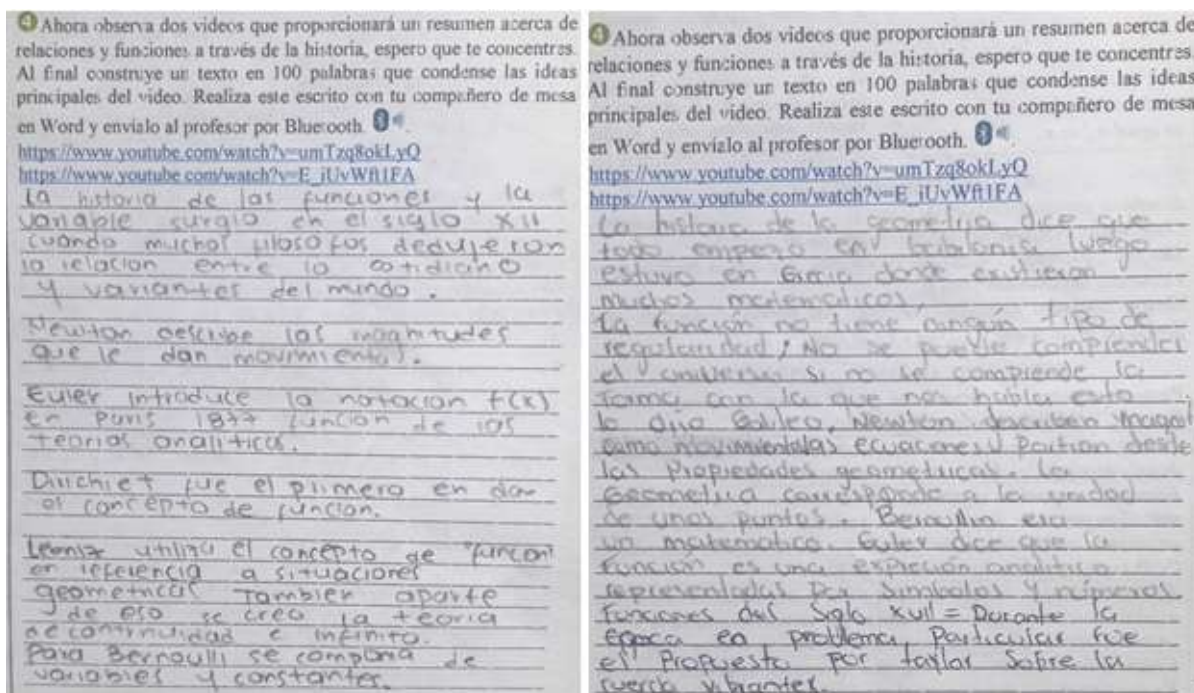 4 Ahora observa dos videos que proporcionará un resumen acerca de
relaciones y funciones a través de la historia, espero que te concentres.
Al final construye un texto en 100 palabras que condense las ideas
principales del video. Realiza este escrito con tu compañero de mesa
en Word y envíalo al profesor por Bluerooth.
https://www.youtube.com/watch?v=umTzq8okLyQ
https://www.youtube.com/watch?v=E_iUvWft1FA
La historia de las funciones y la
variable surgio en el siglo XII
cuando muchos filosofos dedujeron
la relacion entre lo cotidiano
y variantes del mundo.
Newton describe las magnitudes
que le dan movimiento.
Euler introduce la notacion f(x)
en Paris 1877 funcion de las
teorias analiticas.
Dirichlet fue el primero en dar
el concepto de funcion.
utiliza el concepto de "funcion"
en referencia a situaciones
geometricas tambien aparte
de eso se crea la teoria
de continuidad e infinito.
Para Bernoulli se componia de
variables y constantes.
4 Ahora observa dos videos que proporcionará un resumen acerca de
relaciones y funciones a través de la historia, espero que te concentres.
Al final construye un texto en 100 palabras que condense las ideas
principales del video. Realiza este escrito con tu compañero de mesa
en Word y envíalo al profesor por Bluerooth.
https://www.youtube.com/watch?v=umTzq8okLyQ
https://www.youtube.com/watch?v=E_iUvWft1FA
La historia de la geometria dice que
todo empezo en babilonia luego
estuvo en Grecia donde existieron
muchos matematicos.
La función no tiene ningún tipo de
regularidad, No se puede comprender
el universo si no se comprende la
forma con la que nos habla esto
lo dijo Galileo, Newton describen
como ecuaciones y Partian desde
las Propiedades geometricas. La
Geometria corresponde a la unidad
de unos puntos. era
un matematico. Euler dice que la
Función es una expreción analitica
representadas Por Simbolos y números
Funciones del Siglo XVII = Durante la
Epoca en problema Particular fue
el Propuesto por taylor Sobre la
cuerda vibrantes.